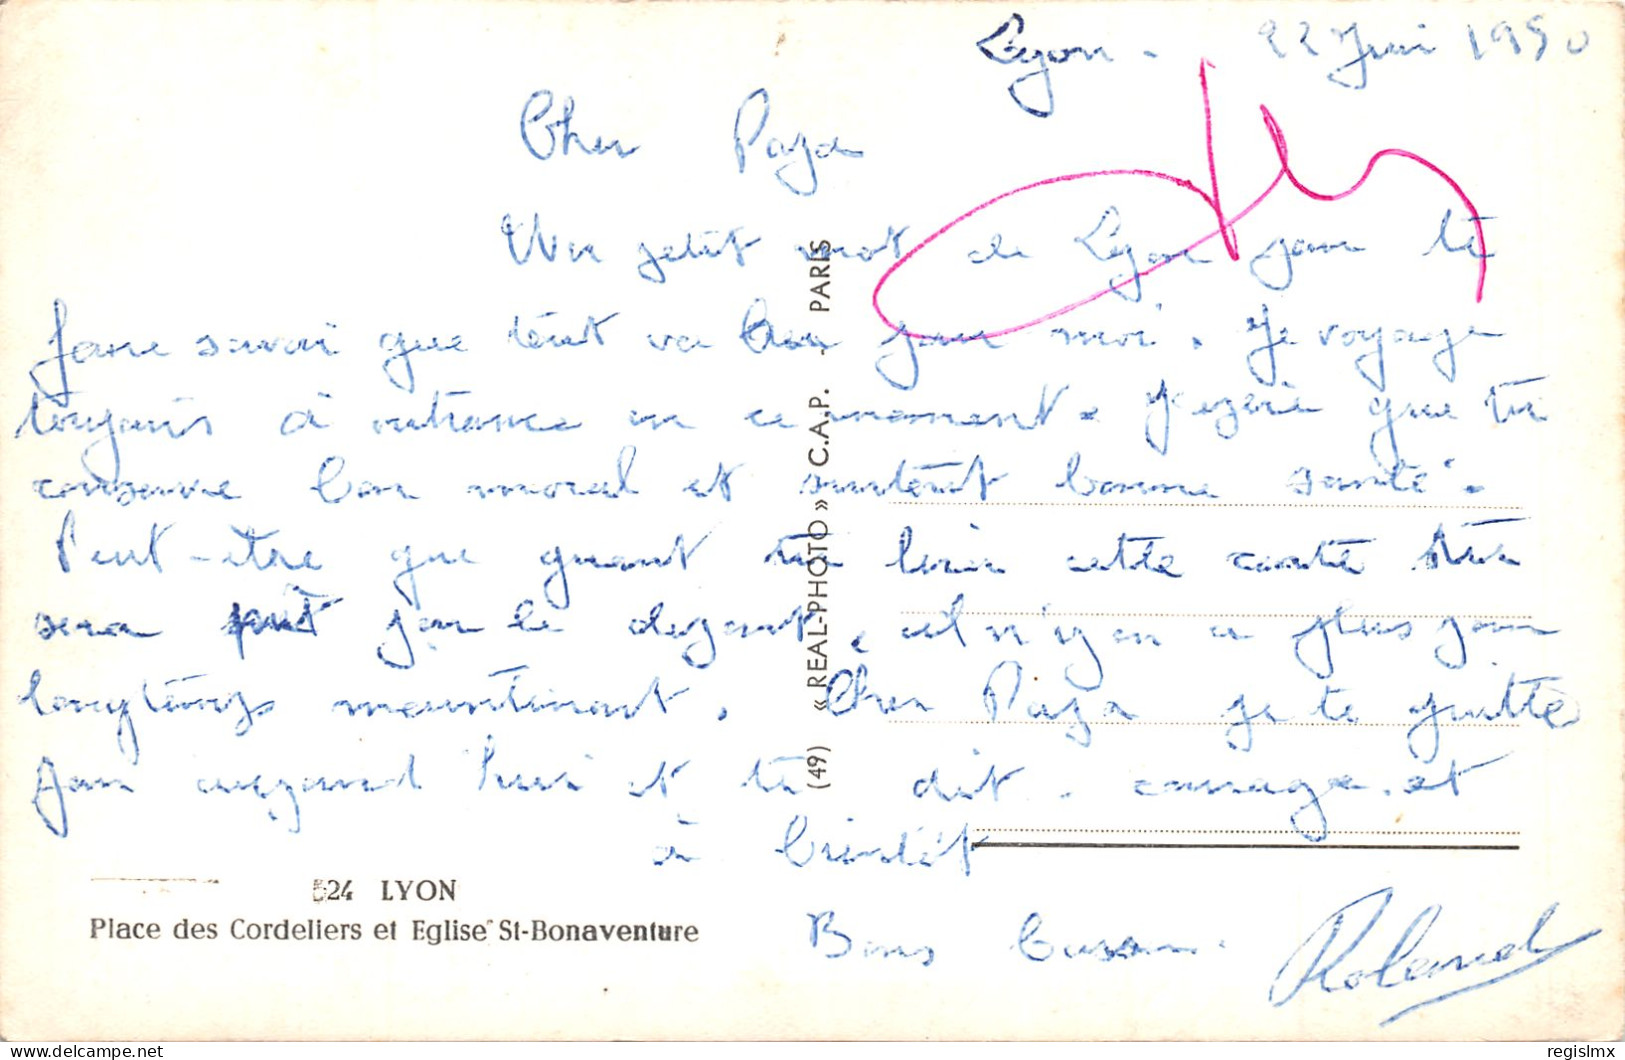 Lyon. 22 Jui 1950
Cher Papa
Un petit mot de Lyon pour te
faire savoir que tout va bien pour moi. Je voyage
toujours à outrance en ce moment. J'espère que tu
conserve bon moral et surtout bonne santé.
Peut-être que quant tu lira cette carte tu
sera prêt pour le depart, il n'y en a plus pour
longtemps maintenant. Cher Papa je te quitte
pour aujourd'hui et te dit. courage. et
à bientôt
Bons baisers.
Roland
(49) « REAL-PHOTO » C.A.P. - PARIS
524 LYON
Place des Cordeliers et Eglise St-Bonaventure
regislmx
delcampe.net